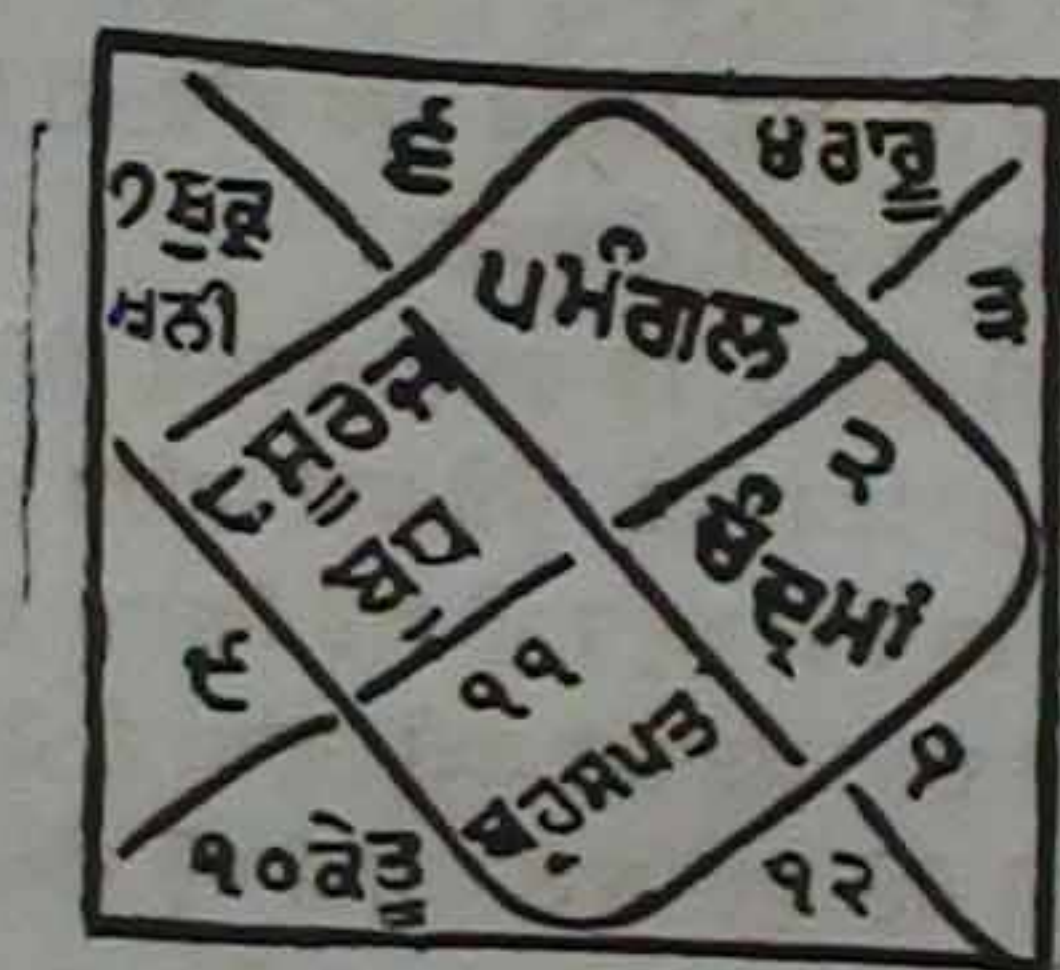 ੬
੪ ਰਾਹੂ
੭ ਸ਼ੁਕ੍ਰ
ਸ਼ਨੀ
੫ ਮੰਗਲ
੩
੮ ਸੂਰਜ
ਬੁਧ
੨
ਚੰਦ੍ਰਮਾਂ
੯
੧੧
ਬ੍ਰਹਸਪਤ
੧
੧੦ ਕੇਤੂ
੧੨